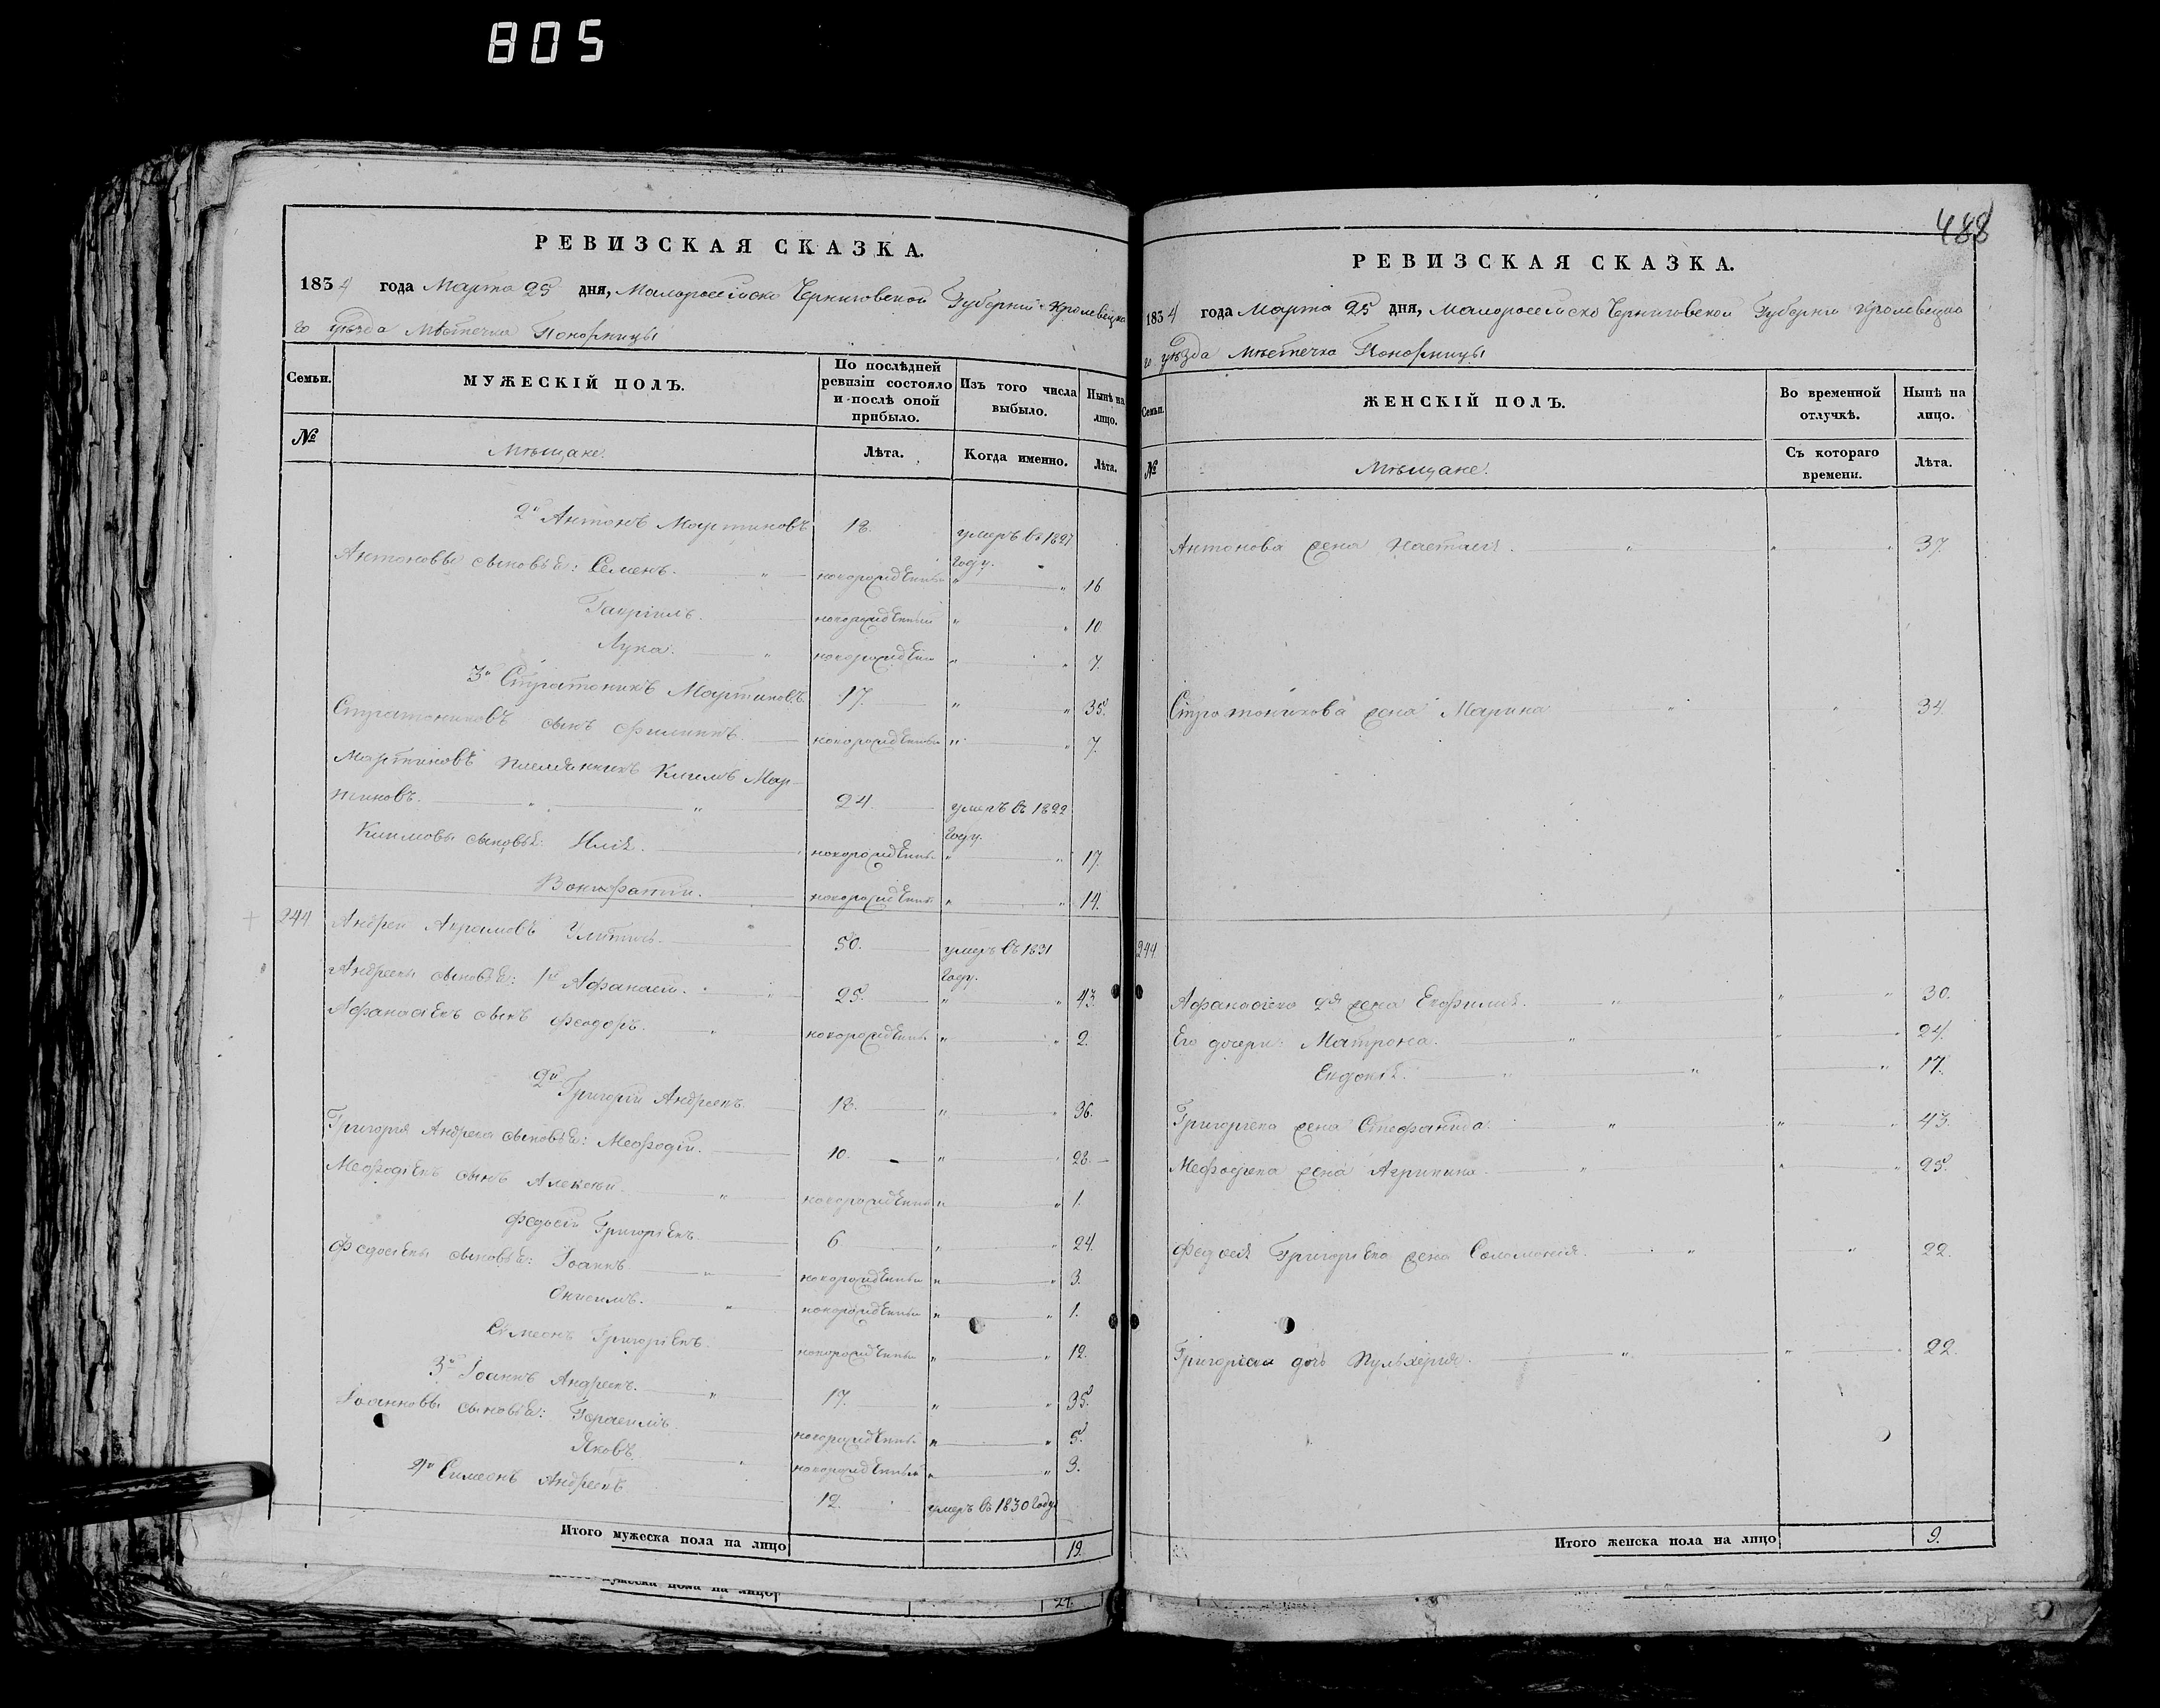 805
РЕВИЗСКАЯ СКАЗКА.
1834 года Марта 25 дня, Малороссійско Черниговской Губерніи Кролевецка
го уѣзда Мѣстечка Понорницы
Семьи.
МУЖЕСКІЙ ПОЛЪ.
По послѣдней ревизіи состояло и послѣ оной прибыло.
Изъ того числа выбыло.
Нынѣ на лицо.
№
Мѣщане.
Лѣта.
Когда именно.
Лѣта.
2й Антонъ Мартиновъ 18. умеръ въ 1827 году.
Антоновы сыновья: Семенъ. новорожденный " " 16
Гавріилъ. новорожденный " " 10
Лука. " новорожден " " 7.
3й Стратоникъ Мартиновъ. 17. " " 35.
Стратониковъ сынъ Филиппъ. новорожденный " " 7.
Мартиновъ племянникъ Климъ Мар-
тиновъ. " " 24. умеръ въ 1822 году.
Климовы сыновья: Илія. новорожденны " " 17.
Вонифатій. новорожденны " " 14.
244 Андрей Авраамовъ 50. умеръ въ 1831 году.
Андреевы сыновья: 1й Афанасій. " " 25. " " 43.
Афанасіевъ сынъ Феодоръ. " новорожденны " " 2.
2й Григорій Андреевъ. 18. " " 36.
Григорія Андреева сыновья: Мефодій. 10. " " 28.
Мефодіевъ сынъ Алексѣй. " новорожденны " " 1.
Федосій Григоріевъ. 6 " " 24.
Федосіевы сыновья: Іоаннъ. " новорожденный " " 3.
Онисимъ. " новорожденный " " 1.
Симеонъ Григоріевъ. новорожденный " " 12.
3й Іоаннъ Андреевъ. " 17. " " 35.
Іоанновы сыновья: Герасимъ. новорожденны " " 5.
Яковъ. " новорожденный " " 3.
4й Симеонъ Андреевъ 12. умеръ въ 1830 году
Итого мужеска пола на лицо 19.
мужеска пола на лицо
488
РЕВИЗСКАЯ СКАЗКА.
1834 года Марта 25 дня, Малороссійско Черниговской Губерніи Кролевецка
го уѣзда Мѣстечка Понорницы
Семьи.
ЖЕНСКІЙ ПОЛЪ.
Во временной отлучкѣ.
Нынѣ на лицо.
№
Мѣщане.
Съ котораго времени.
Лѣта.
Антонова жена Настасія. " " " 37.
Стратоникова жена Марина " " 34.
244
Афанасіева 2я жена Евфимія. " " " 30.
Его дочери: Матрона. " " " 24.
Евдокія. " " " 17.
Григоріева жена Стефанида. " " " 43.
Мефодіева жена Агрипина. " " " 25.
Федосія Григоріева жена Соломонія. " " 22.
Григоріева дочь Пульхерія. " " " 22.
Итого женска пола на лицо 9.